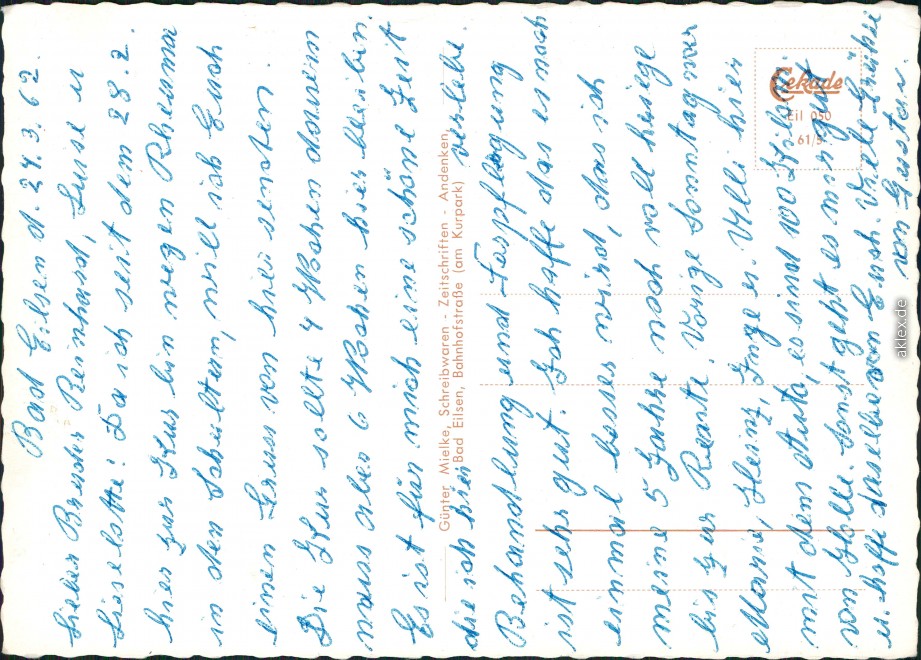 Bad Eilsen d. 24.3.62.
Lieber Bruder Reinhard, Luise u
Liselotte! Da ich seit dem 28.2.
hier zur Kur bin wegen Rheuma
in den Schultern, will ich Euch
einen Gruss von hier senden.
Die Kur sollte 4 Wochen dauern
muss aber 6 Wochen hier bleiben.
Es ist für mich eine schöne Zeit
die ich hier verlebe.
Behandlung und Verpflegung
ist sehr gut. Ich hoffe das es noch
einmal besser wird, das ich
meine 5 Jahre noch voll kriege
bis zur Rente Vorige Sonntag war
Marie, Heinz, Inge u. Ulli hier
mit dem Auto, es sind 100 Kilm
von Holle. Sonst geht es mir gut
u. hoffe dasselbe von Euch. Viele Grüße
von Gustav.
Günter Mielke, Schreibwaren - Zeitschriften - Andenken,
Bad Eilsen, Bahnhofstraße (am Kurpark)
Cekade
Eil 050
61/5
aklex.de